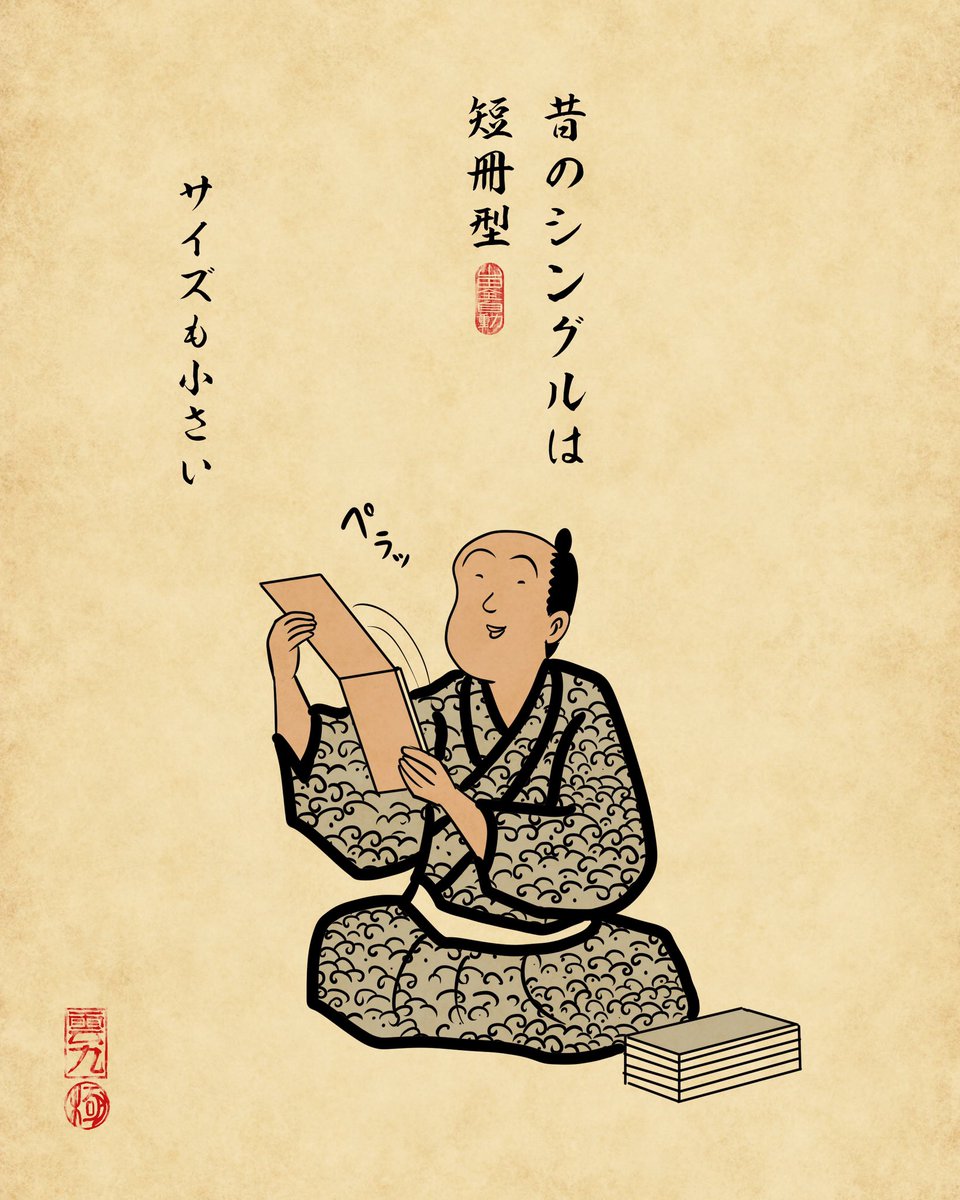 昔のシングルは
短冊型
サイズも小さい
ペラッ